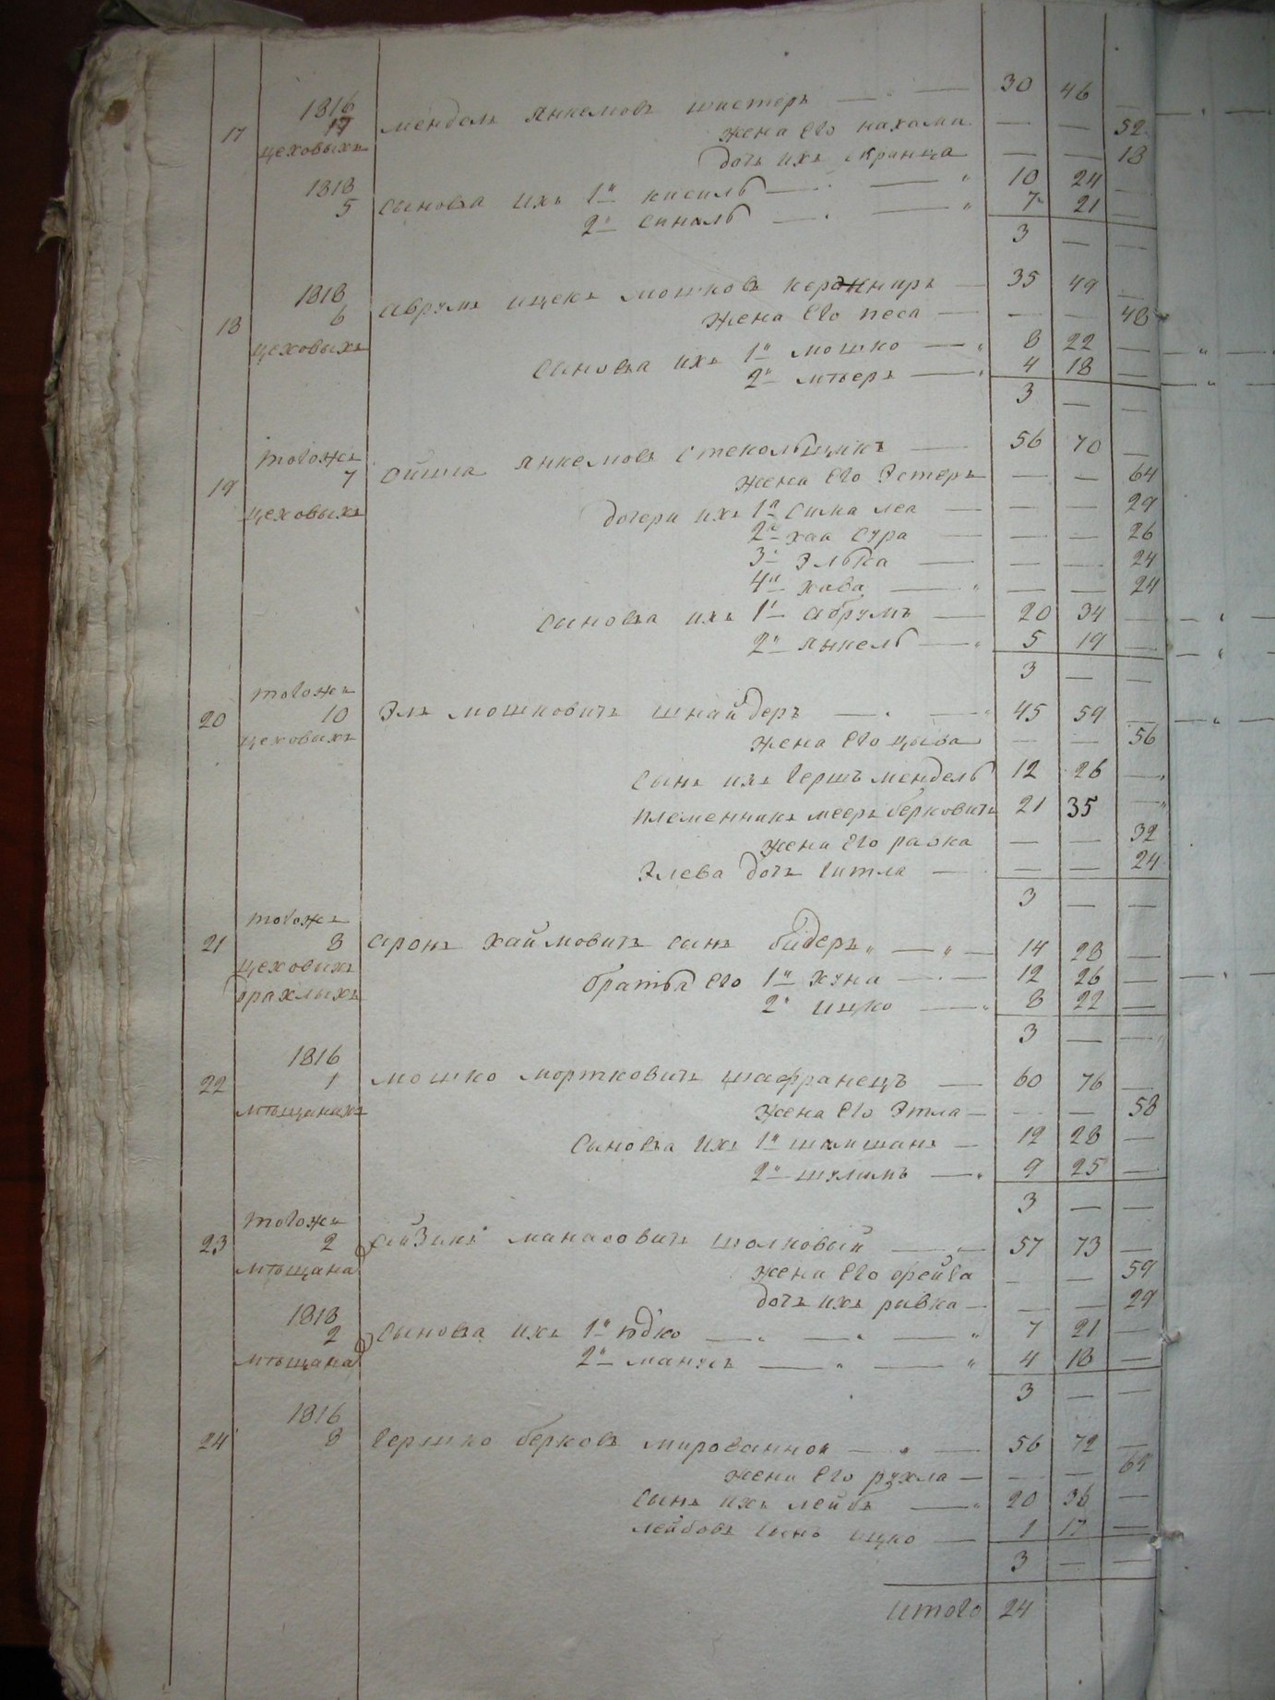 1816 30 46
17 17 мендель Янкелевъ шистеръ
цеховыхъ жена Его нахама 52
дочь ихъ Кранца 18
1818
5 сыновья ихъ 1й кисиль 10 24
2й синаль 7 21
3
1818 35 49
18 6 аврумъ ицекъ мошковъ
жена Его песа 48
цеховыхъ
сыновья ихъ 1й мошко 8 22
2й мѣеръ 4 18
3
тогожъ 56 70
19 7 ойшиа Янкелевъ стекольщикъ
жена Его Эстеръ 64
цеховыхъ
дочери ихъ 1я сима леа 29
2я хаа сура 26
3я Элька 24
4я хава 24
сыновья ихъ 1й абрумъ 20 34
2й янкель 5 19
3
тогожъ
20 10 Эль мошковичъ шнайдеръ 45 59
цеховыхъ жена Его цыва 56
сынъ ихъ гершъ мендель 12 26
племенникъ мееръ берковичъ 21 35
жена Его равка 32
Элева дочь гитла 24
3
тогожъ
21 8 аронъ хаймовичъ сынъ бидеръ 14 28
цеховыхъ
братья Его 1й хуна 12 26
дряхлыхъ
2й ицко 8 22
3
1816
22 1 мошко мортковичъ шафранецъ 60 76
мѣщанихъ жена Его Этла 58
сыновья ихъ 1й шамшанъ 12 28
2й шулимъ 9 25
3
тогожъ
23 2 айзикъ манасовичъ шолковый 57 73
мѣщана жена Его фрейга 59
дочь ихъ ривка 29
1818
2 сыновья ихъ 1й юдко 7 21
мѣщана 2й манусъ 4 18
3
1816
24 8 гершко берковъ мированной 56 72
жена Его рухла
сынъ ихъ лейбъ 20 36
лейбовъ сынъ ицко 1 17
3
итого 24